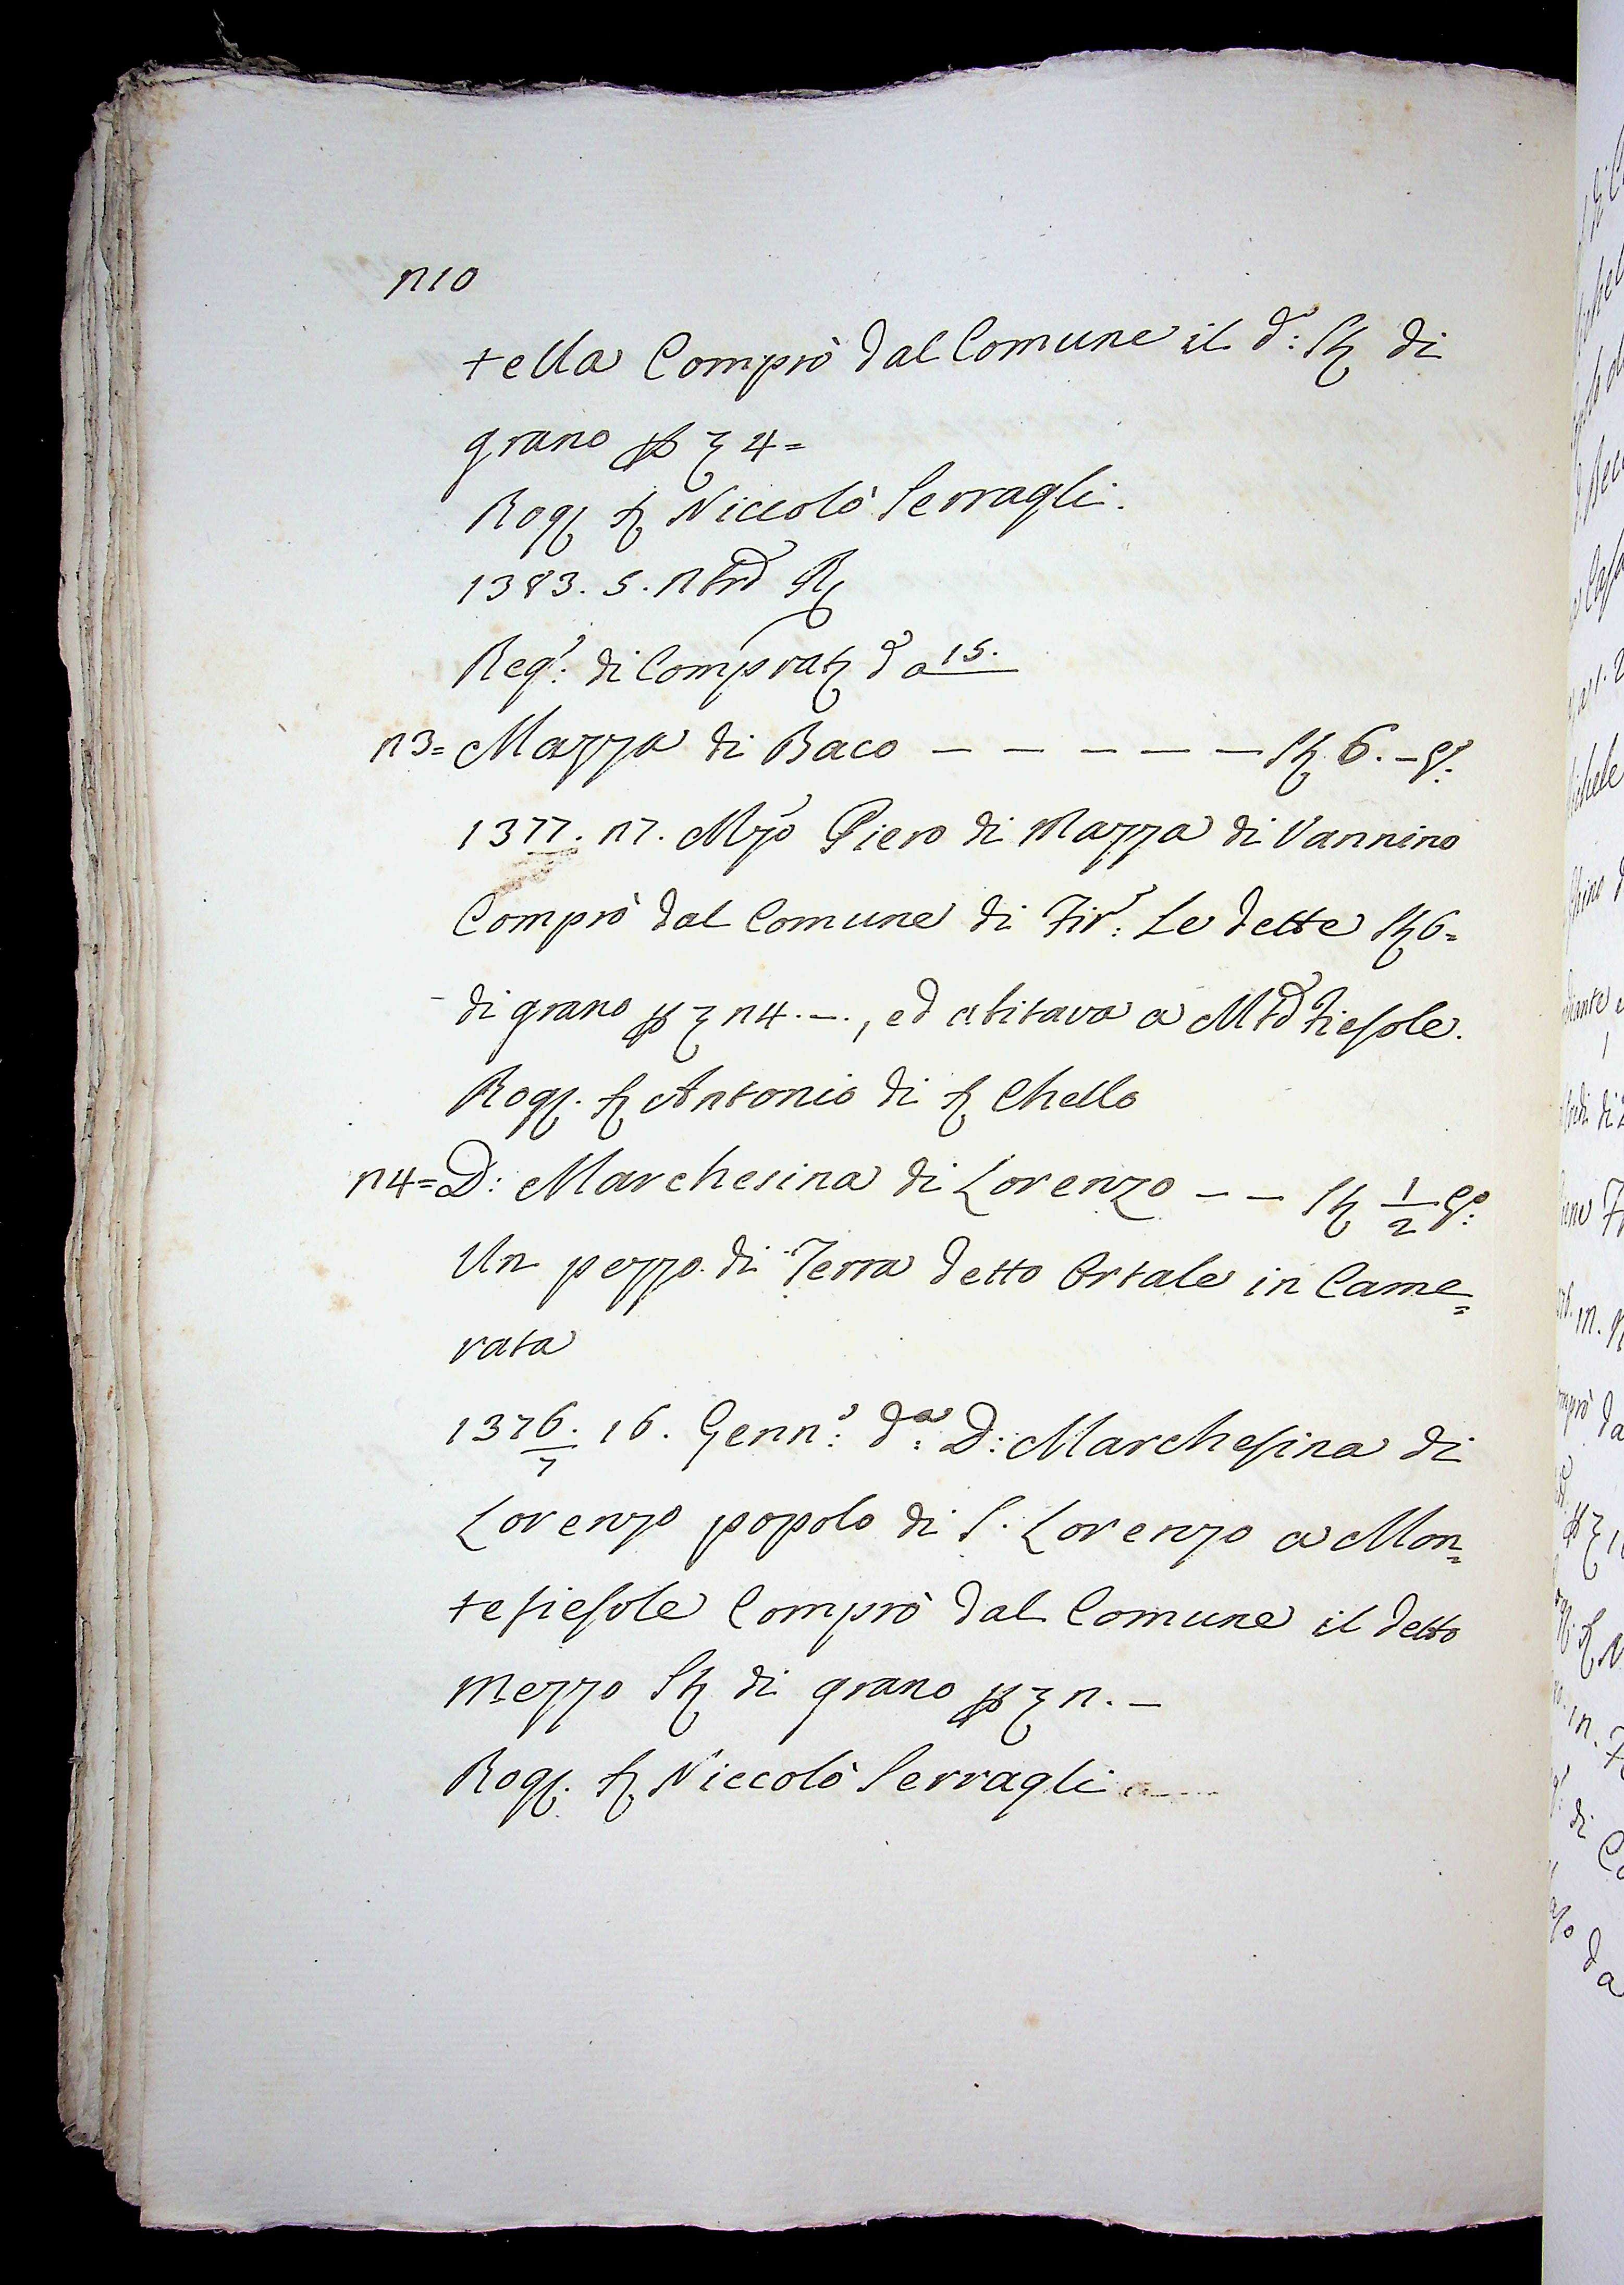 n10
tella Comprò dal Comune il d.º: St di
grano p f 4=
Rog. f Niccolò Serragli.
1383. 5. nbre R
Reg.º: di Comprat d a 15.
n3= Mazza di Baco — — — — — St 6. – g.º:
1377. n7. Mzo Piero di Mazza di Vannino
Comprò dal Comune di Fir.e: Le dette St 6=
di grano p f n4. –., ed abitava a Mte Fiesole.
Rog. f Antonio di f Chello
n4= D: Marchesina di Lorenzo – – St 1/2 g.º:
Un pezzo di Terra detto Ortale in Came=
rata
1376./7 16. Genn.º: d.a: D: Marchesina di
Lorenzo popolo di S. Lorenzo a Mon=
tefiesole Comprò dal Comune il detto
mezzo St di grano p f n. –
Rog. f Niccolò Serragli